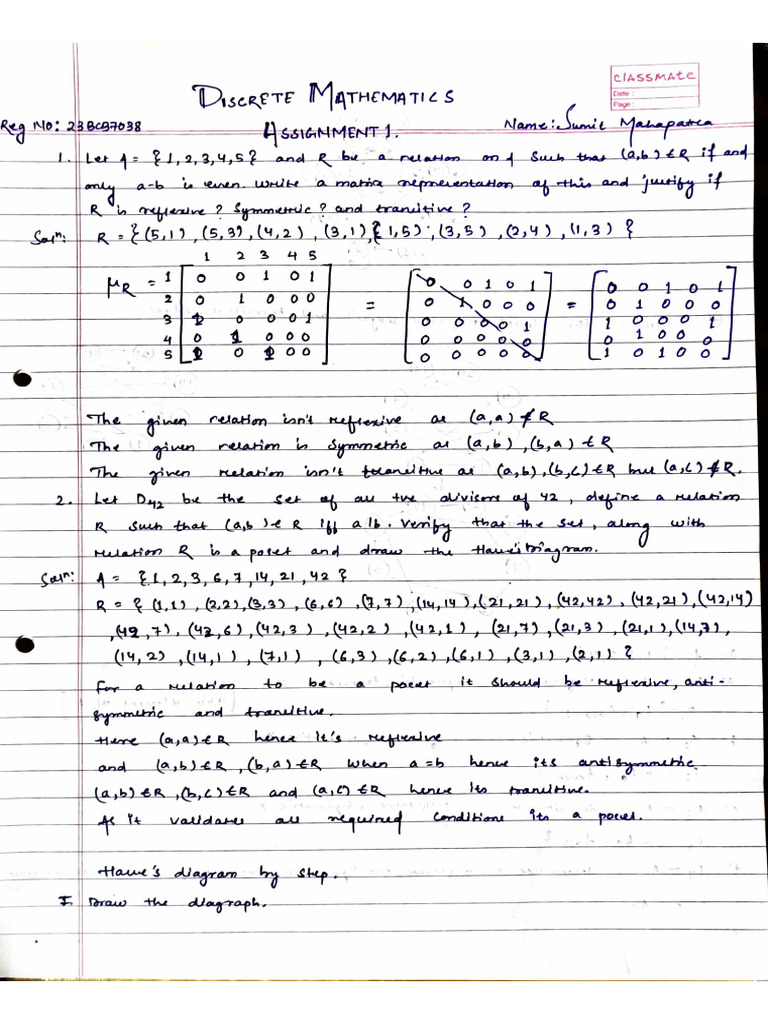 classmate
Date :
Page :
DISCRETE MATHEMATICS
Reg No: 23BCB7038
ASSIGNMENT 1.
Name: Sumit Mahapatra
1. Let A = {1,2,3,4,5} and R be a relation on A such that (a,b) ∈ R if and
only a-b is even. Write a matrix representation of this and justify if
R is reflexive? Symmetric? and transitive?
Solⁿ: R = {(5,1), (5,3), (4,2), (3,1), {1,5), (3,5), (2,4), (1,3)}
1 2 3 4 5
μR = 1 [0 0 1 0 1] = [0 0 1 0 1] = [0 0 1 0 1]
2 [0 1 0 0 0] [0 1 0 0 0] [0 1 0 0 0]
3 [1 0 0 0 1] [0 0 0 0 1] [1 0 0 0 1]
4 [0 1 0 0 0] [0 0 0 0 0] [0 1 0 0 0]
5 [1 0 1 0 0] [0 0 0 0 0] [1 0 1 0 0]
The given relation isn't reflexive as (a,a) ∉ R
The given relation is symmetric as (a,b), (b,a) ∈ R
The given relation isn't transitive as (a,b), (b,c) ∈ R but (a,c) ∉ R.
2. Let D42 be the set of all the divisors of 42, define a relation
R such that (a,b) ∈ R iff a|b. Verify that the set, along with
relation R is a poset and draw the Hasse's Diagram.
Solⁿ: A = {1,2,3,6,7,14,21,42}
R = {(1,1), (2,2), (3,3), (6,6), (7,7), (14,14), (21,21), (42,42), (42,21), (42,14)
,(42,7), (42,6), (42,3), (42,2), (42,1), (21,7), (21,3), (21,1), (14,7),
(14,2), (14,1), (7,1), (6,3), (6,2), (6,1), (3,1), (2,1)}
For a relation to be a poset it should be reflexive, anti-
symmetric and transitive.
Here (a,a) ∈ R hence it's reflexive
and (a,b) ∈ R, (b,a) ∈ R when a=b hence its antisymmetric
(a,b) ∈ R, (b,c) ∈ R and (a,c) ∈ R hence its transitive.
As it validates all required conditions its a poset.
Hasse's diagram by step.
I. Draw the diagraph.